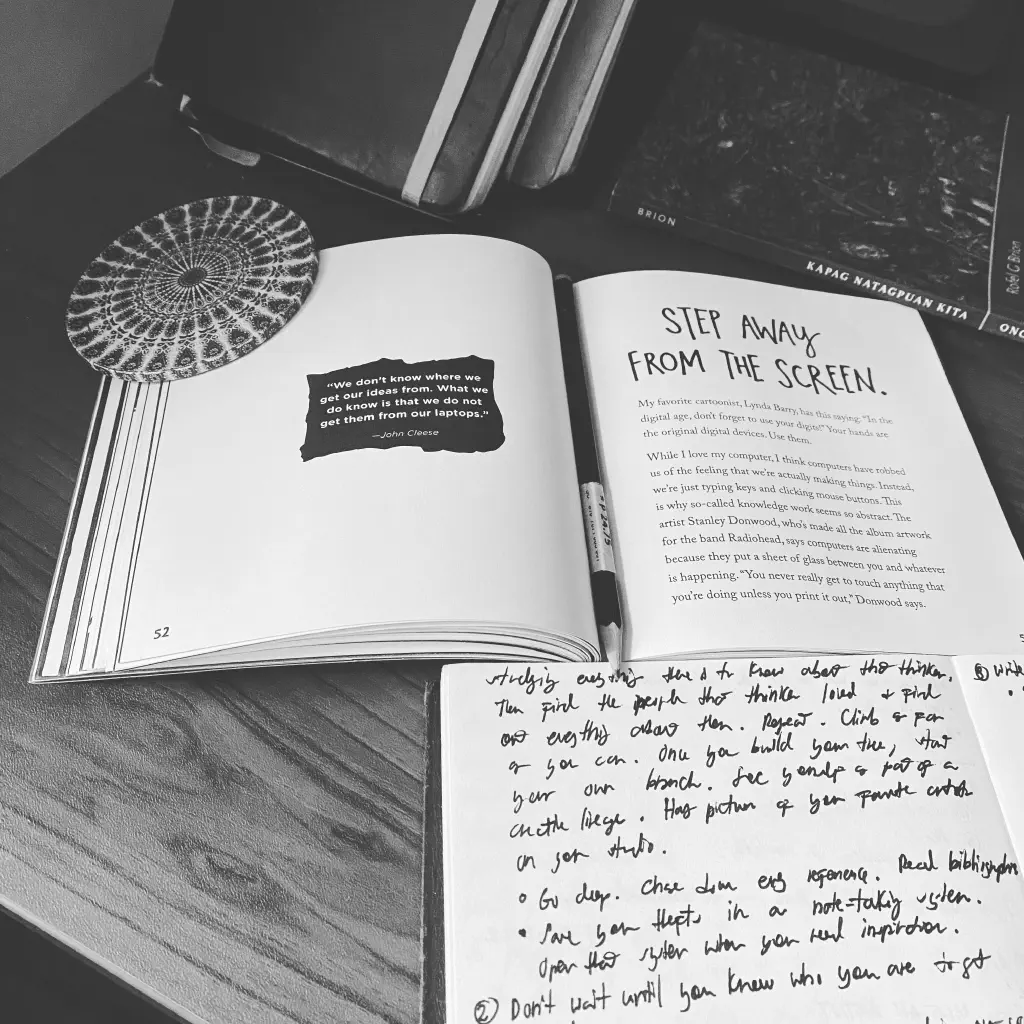 BRION
KAPAG NATAGPUAN KITA
Rofel G Brion
"We don't know where we
get our ideas from. What we
do know is that we do not
get them from our laptops."
—John Cleese
52
STEP AWAY
FROM THE SCREEN.
My favorite cartoonist, Lynda Barry, has this saying: "In the
digital age, don't forget to use your digits!" Your hands are
the original digital devices. Use them.
While I love my computer, I think computers have robbed
us of the feeling that we're actually making things. Instead,
we're just typing keys and clicking mouse buttons. This
is why so-called knowledge work seems so abstract. The
artist Stanley Donwood, who's made all the album artwork
for the band Radiohead, says computers are alienating
because they put a sheet of glass between you and whatever
is happening. "You never really get to touch anything that
you're doing unless you print it out," Donwood says.
studying everything there is to know about that thinker.
Then find the people that thinker loved & find
out everything about them. Repeat. Climb as far
as you can. Once you build your tree, start
your own branch. See yourself as part of a
creative lineage. Hang pictures of your favorite artists
in your studio.
• Go deep. Chase down every reference. Read bibliographies
• Save your thefts in a note-taking system.
Open that system when you need inspiration.
② Don't wait until you know who you are to get